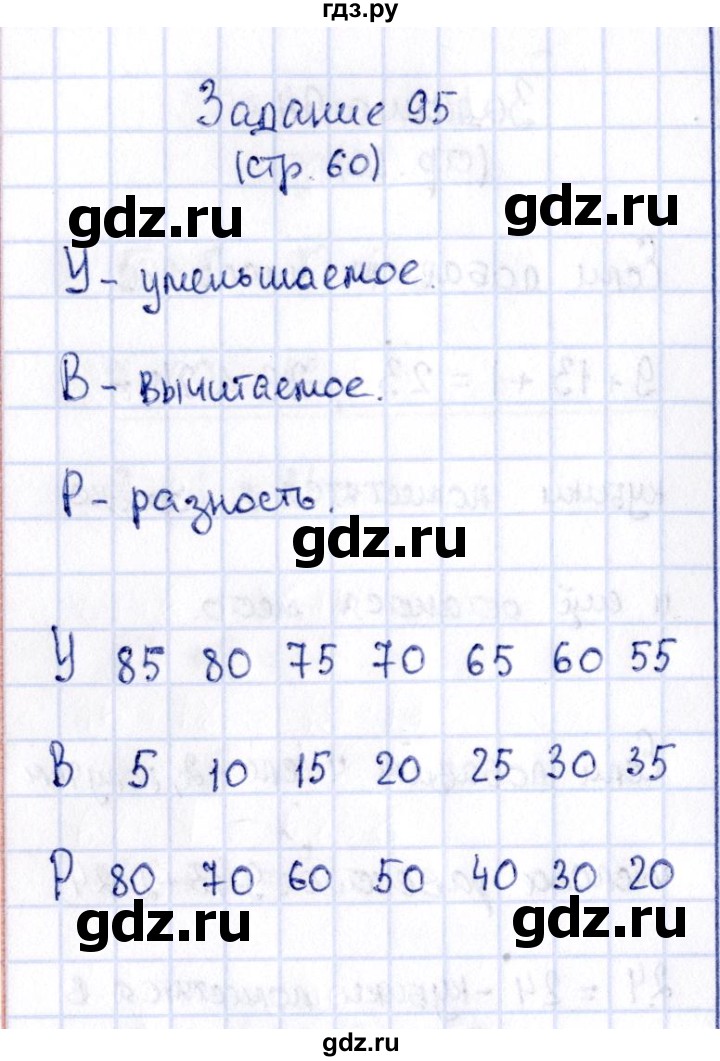 гдз.ру
Задание 95
(стр. 60)
gdz.ru
gdz.ru
У - уменьшаемое.
В - вычитаемое.
Р - разность.
gdz.ru
У 85 80 75 70 65 60 55
В 5 10 15 20 25 30 35
Р 80 70 60 50 40 30 20
gdz.ru
gdz.ru
gdz.ru